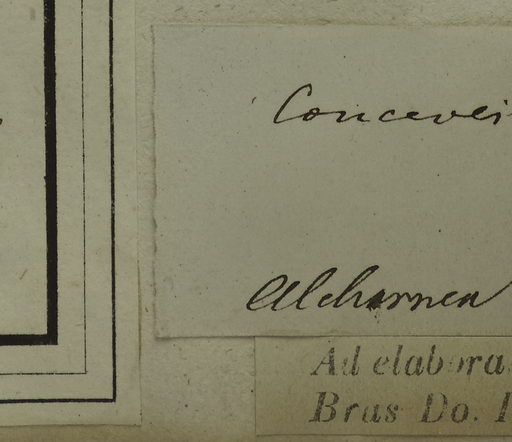 Concevei
Alchornea
Ad elabora
Bras Do. I